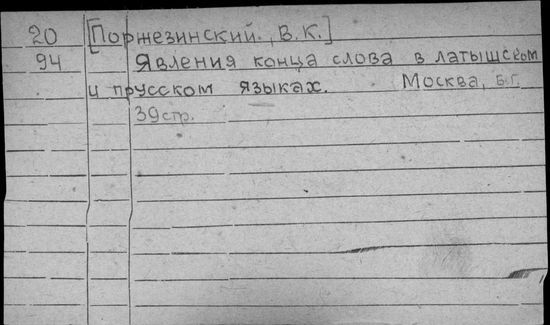 20 [Поржезинский., В.К.]
94 Явления конца слова в латышском
и прусском языках. Москва, б.г.
39стр.